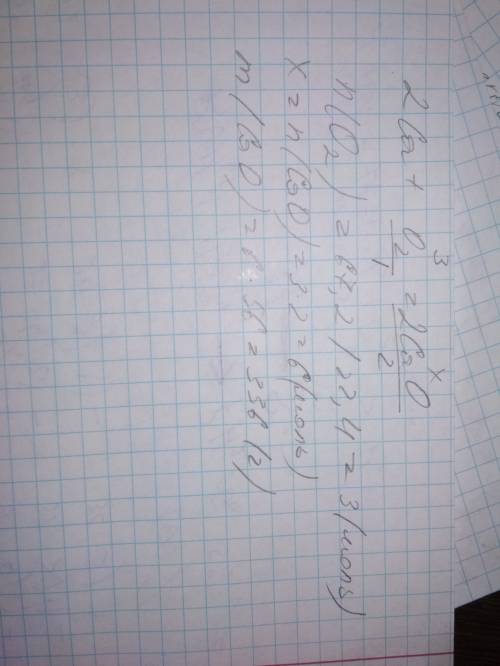 3 x
2Ca + O2 = 2CaO
1 2
n(O2) = 67,2 / 22,4 = 3 (моль)
x = n(CaO) = 3·2 = 6 (моль)
m(CaO) = 6·56 = 336 (г)